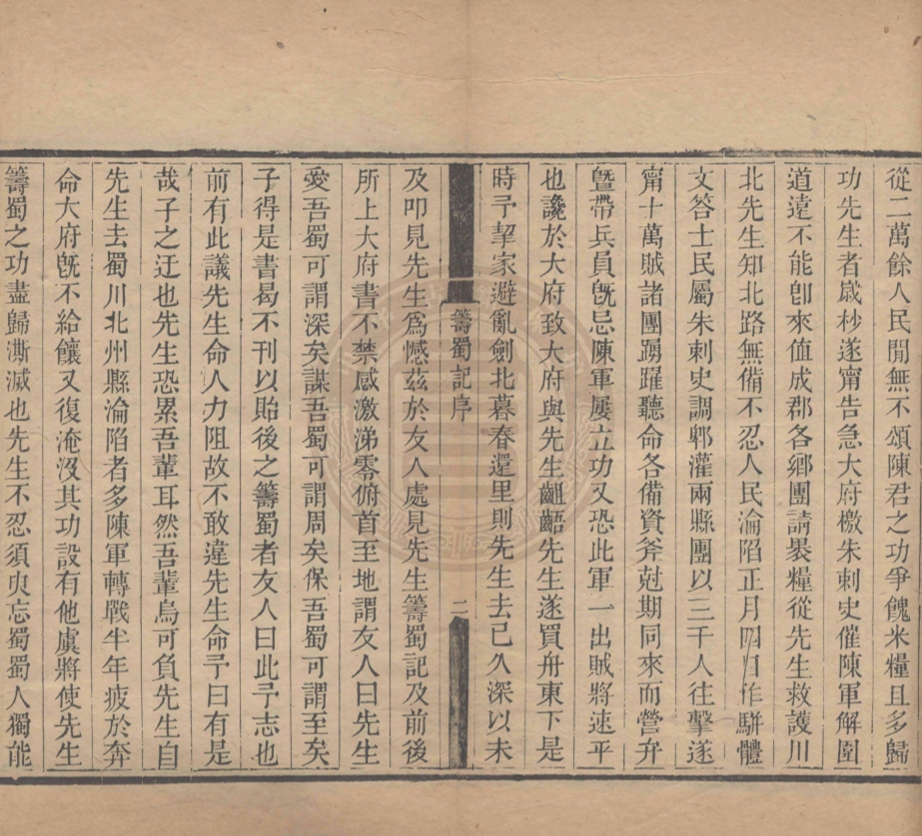 從二萬餘人民閒無不頌陳君之功爭餽米糧且多歸
功先生者歲杪遂甯告急大府檄朱刺史催陳軍解圍
道遠不能卽來值成郡各鄉團請褁糧從先生救護川
北先生知北路無備不忍人民淪陷正月四日作駢體
文答士民屬朱刺史調郫灌兩縣團以三千人往擊遂
甯十萬賊諸團踴躍聽命各備資斧尅期同來而營弁
曁帶兵員旣忌陳軍屢立功又恐此軍一出賊將速平
也讒於大府致大府與先生齟齬先生遂買舟東下是
時予挈家避亂劍北暮春還里則先生去已久深以未
籌蜀記序
二
及叩見先生爲憾茲於友人處見先生籌蜀記及前後
所上大府書不禁感激涕零俯首至地謂友人曰先生
愛吾蜀可謂深矣謀吾蜀可謂周矣保吾蜀可謂至矣
子得是書曷不刊以貽後之籌蜀者友人曰此予志也
前有此議先生命人力阻故不敢違先生命予曰有是
哉子之迂也先生恐累吾輩耳然吾輩烏可負先生自
先生去蜀川北州縣淪陷者多陳軍轉戰半年疲於奔
命大府旣不給饟又復淹沒其功設有他虞將使先生
籌蜀之功盡歸澌滅也先生不忍須臾忘蜀蜀人獨能